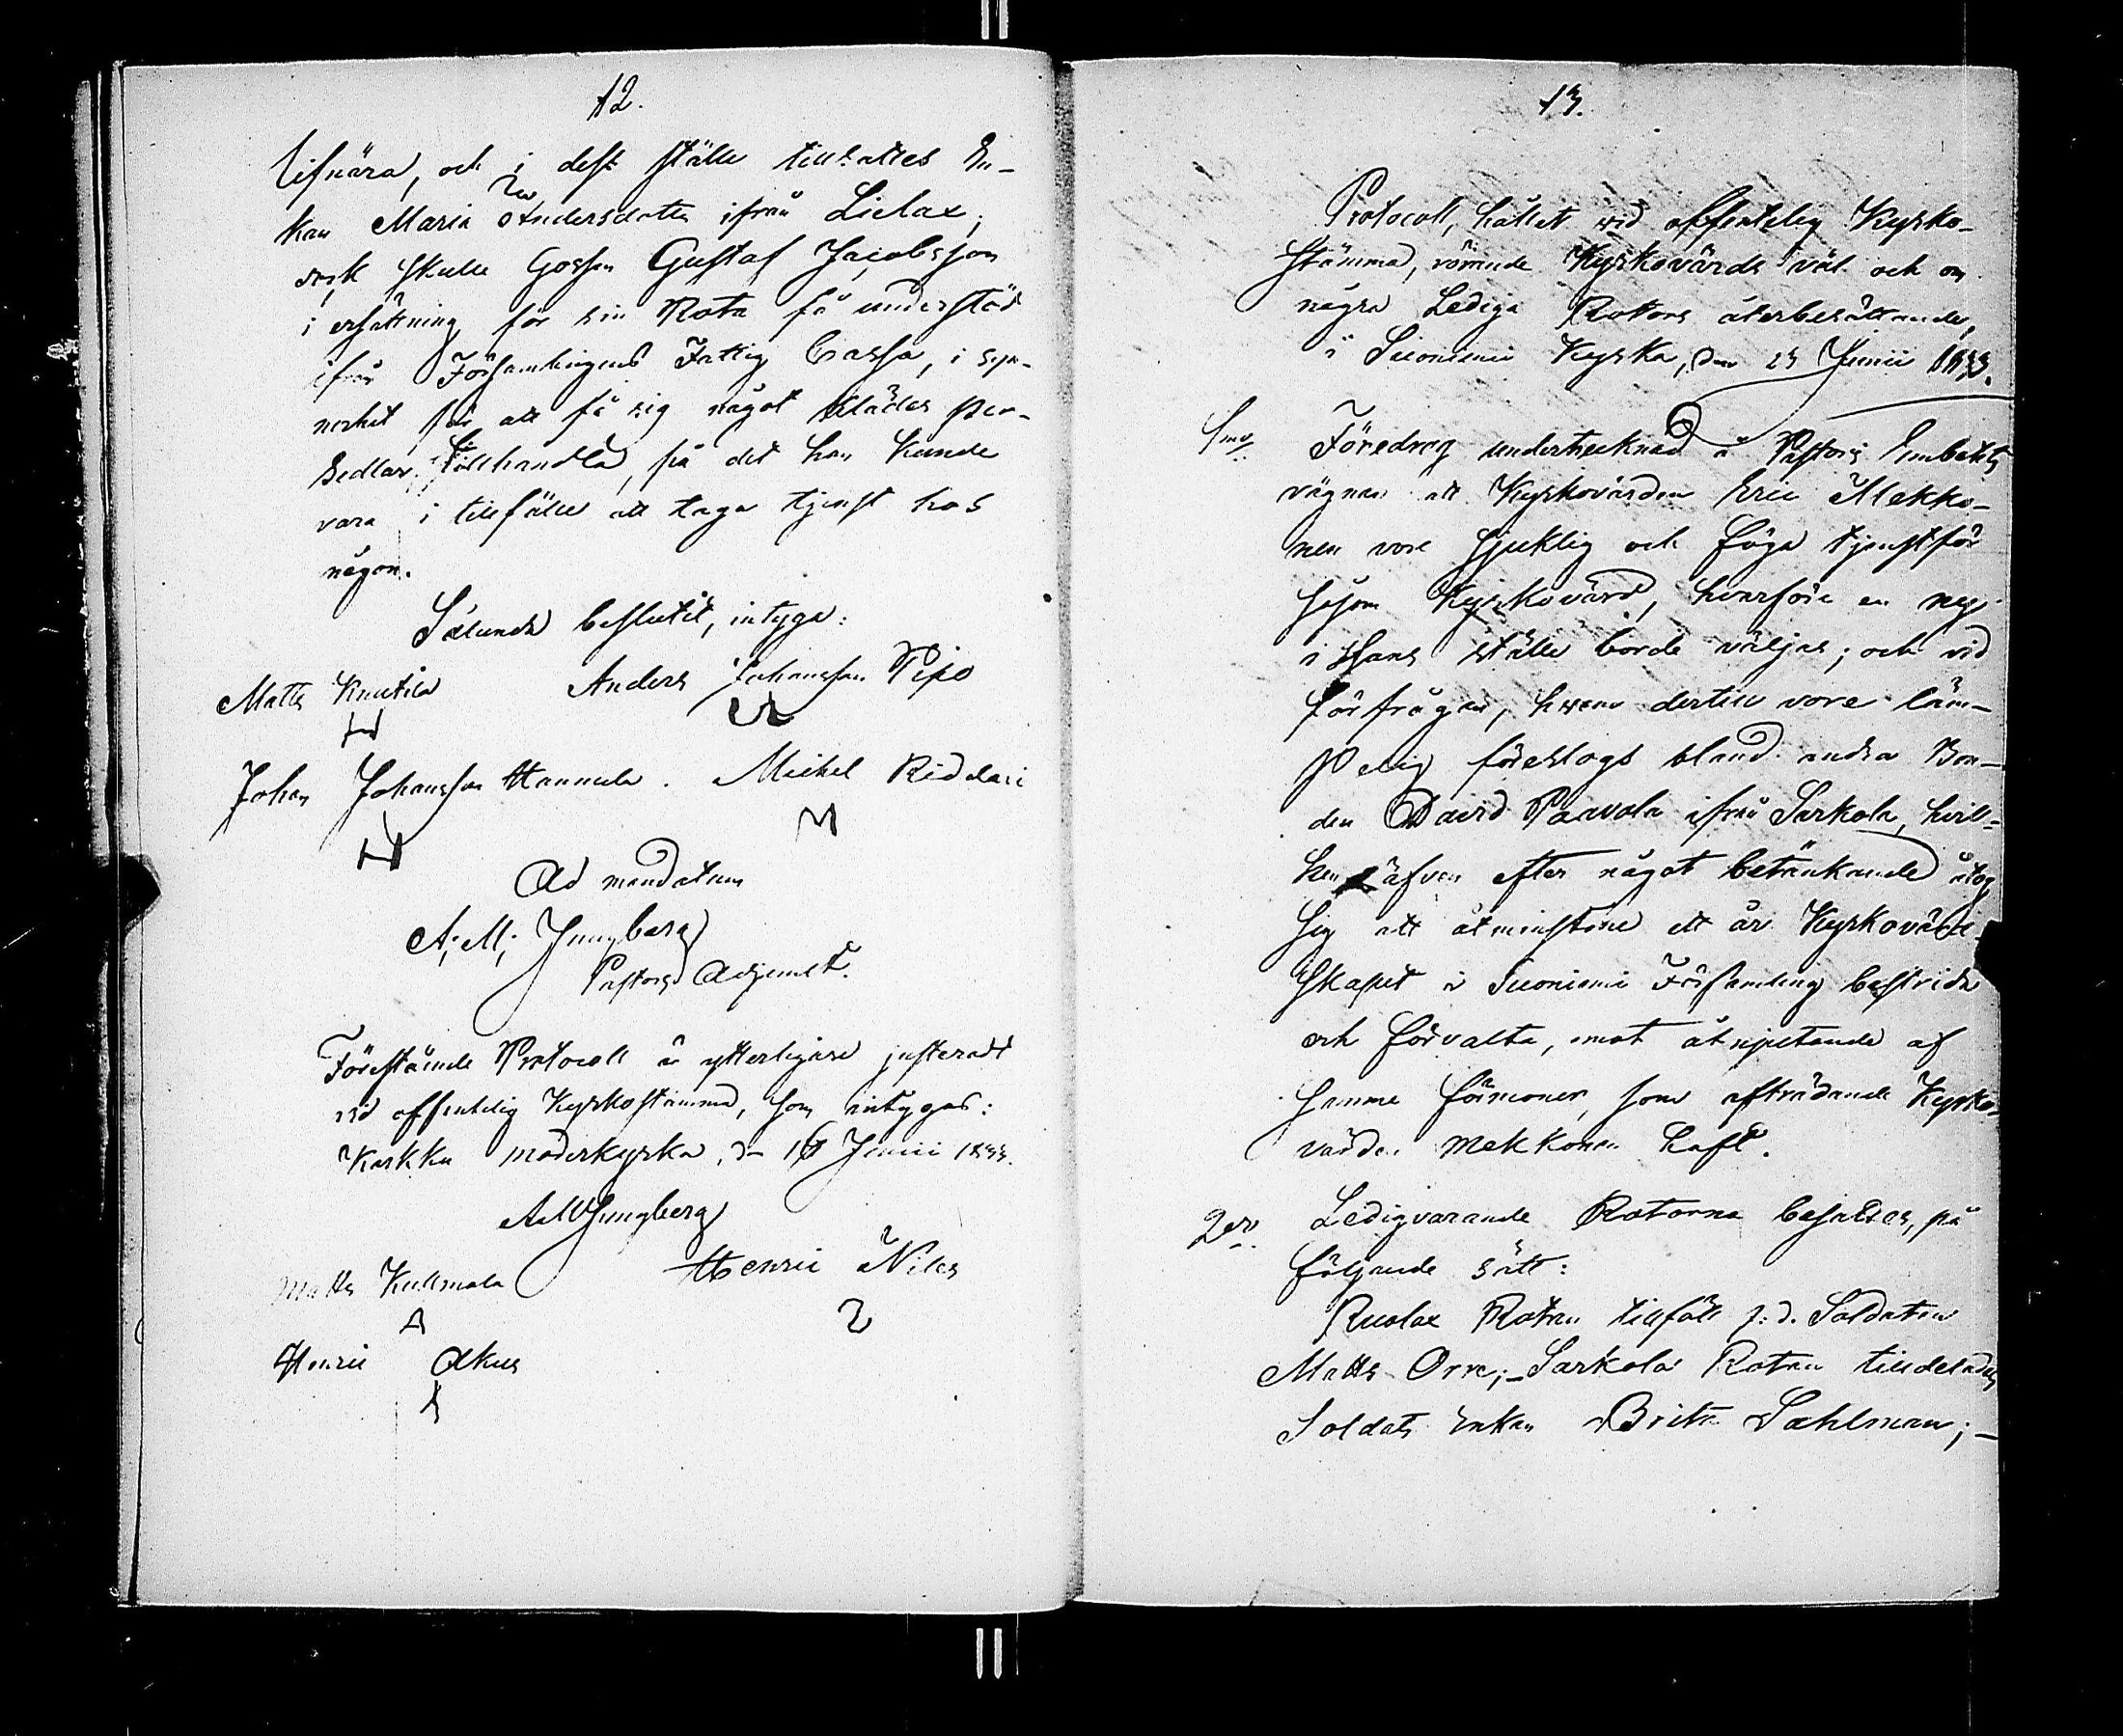 12.
lifnära, och i dess ställe tillsattes En-
kan Maria Andersdotter ifrån Lielax,
och skulle Gossen Gustaf Jacobsson
i ersättning för sin Rota få understöd
ifrån Församlingens Fattig Cassa, i syn-
nerhet för att få sig något kläder per-
sedlar tillhandla, på det han kunde
vara i tillfälle att taga tjenst hos
någon.
Sålunda beslutit, intyga:
Matts Knutila Anders Johansson Pipo
Johan Johansson Hannula. Michel Riddari
Ad mandatum
A: M: Ljungberg
Pastors Adjunct.
Förestående Protocoll är ytterligare justeradt
vid offentelig Kyrkostämma, som intygas:
Karkku moderkyrka, den 16 Junii 1833.
A M Ljungberg
Matts Kullmala Henric Niles
Henric Akus
13.
Protocoll, hållet vid offentelig Kyrko-
stämma, rörande Kyrkovärds väl och om
några Lediga Rotors återbesättande,
i Suoniemi Kyrka, den 23 Junii 1833.
1mo Föredrog undertecknad å Pastors Embetets
vägnar att Kyrkovärden Eric Mekko-
nen vore sjuklig och föga tjenstför
såsom Kyrkovärd, hvarföre en ny
i Hans ställe borde väljas; och vid
förfrågan, hvem dertill vore läm-
pelig föreslogs bland andra Bon-
den David Paavola ifrån Sarkola, hvil-
ken äfven efter något betänkande åtog
sig att åtminstone ett år Kyrkovärd-
skapet i Suoniemi Församling bestrida
och förvalta, mot åtnjutande af
samme förmoner, som afträdande Kyrko-
värden Mekkonen haft.
2do. Ledigvarande Rotorna besattes, på
följande sätt:
Kuolax Rotan tillföll f. d. Soldaten
Matts Orre; – Sarkola Rotan tilldelades
Soldats Enkan Brita Sahlman; –